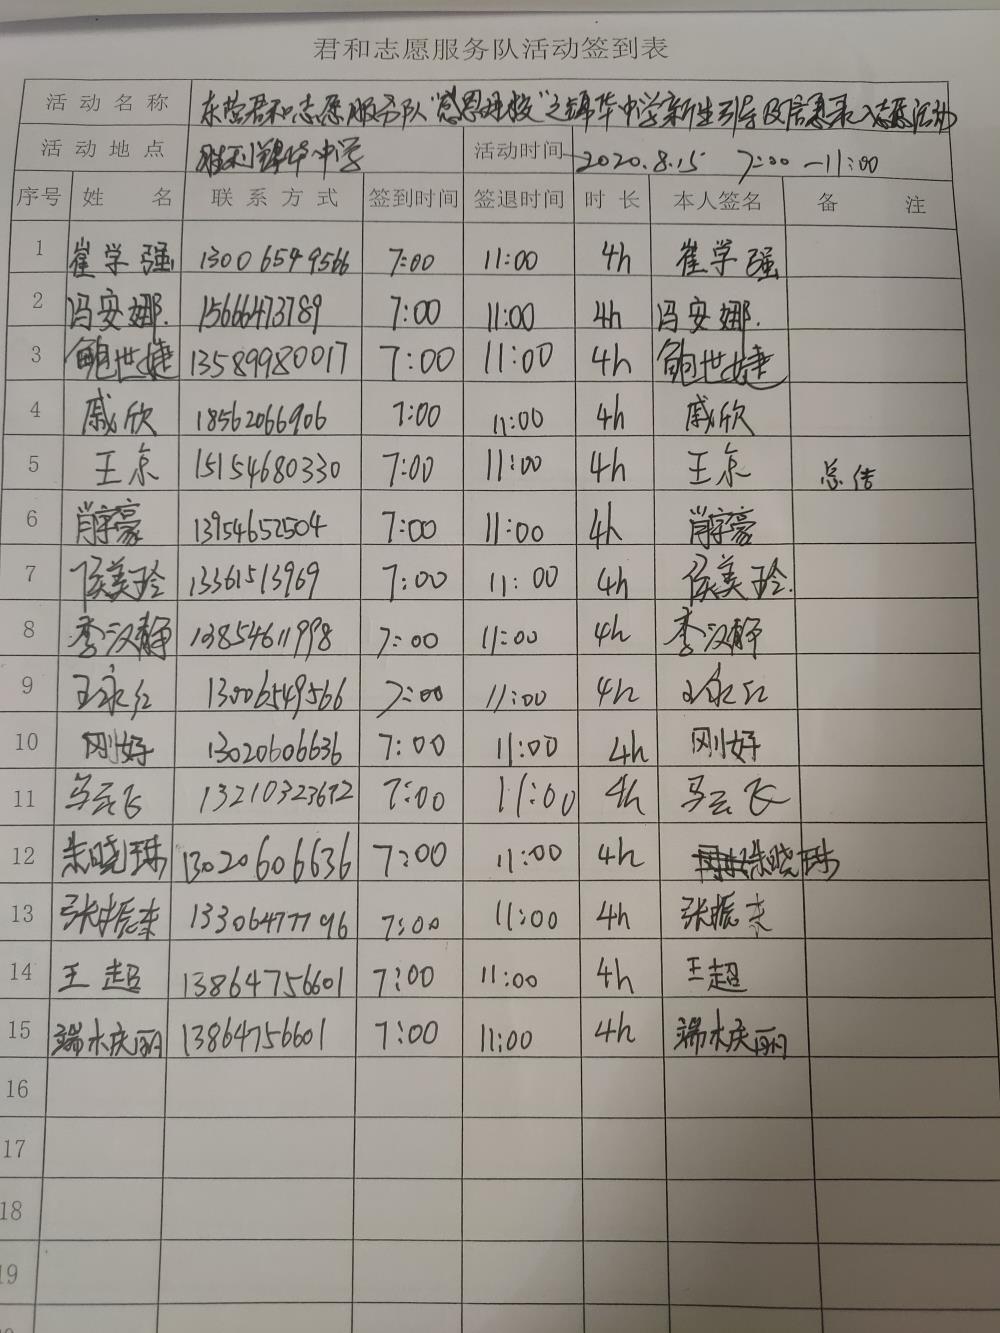 君和志愿服务队活动签到表
活动名称 东营君和志愿服务队“感恩母校”之锦华中学新生引导及信息录入志愿活动
活动地点 胜利锦华中学 活动时间 2020.8.15 7:00—11:00
序号 姓名 联系方式 签到时间 签退时间 时长 本人签名 备注
1 崔学强 13006549566 7:00 11:00 4h 崔学强
2 冯安娜. 15666473789 7:00 11:00 4h 冯安娜.
3 鲍世婕 13589980017 7:00 11:00 4h 鲍世婕
4 戚欣 18562066906 7:00 11:00 4h 戚欣
5 王京 15154680330 7:00 11:00 4h 王京 总结
6 肖宇豪 13954652504 7:00 11:00 4h 肖宇豪
7 侯美玲 13361513969 7:00 11:00 4h 侯美玲.
8 李汉静 13854611998 7:00 11:00 4h 李汉静
9 王永红 13006549566 7:00 11:00 4h 王永红
10 刚好 13020606636 7:00 11:00 4h 刚好
11 马云飞 13210323672 7:00 11:00 4h 马云飞
12 朱晓琳 13020606636 7:00 11:00 4h 朱晓琳
13 张振杰 13306477796 7:00 11:00 4h 张振杰
14 王超 13864756601 7:00 11:00 4h 王超
15 端木庆丽 13864756601 7:00 11:00 4h 端木庆丽
16
17
18
19